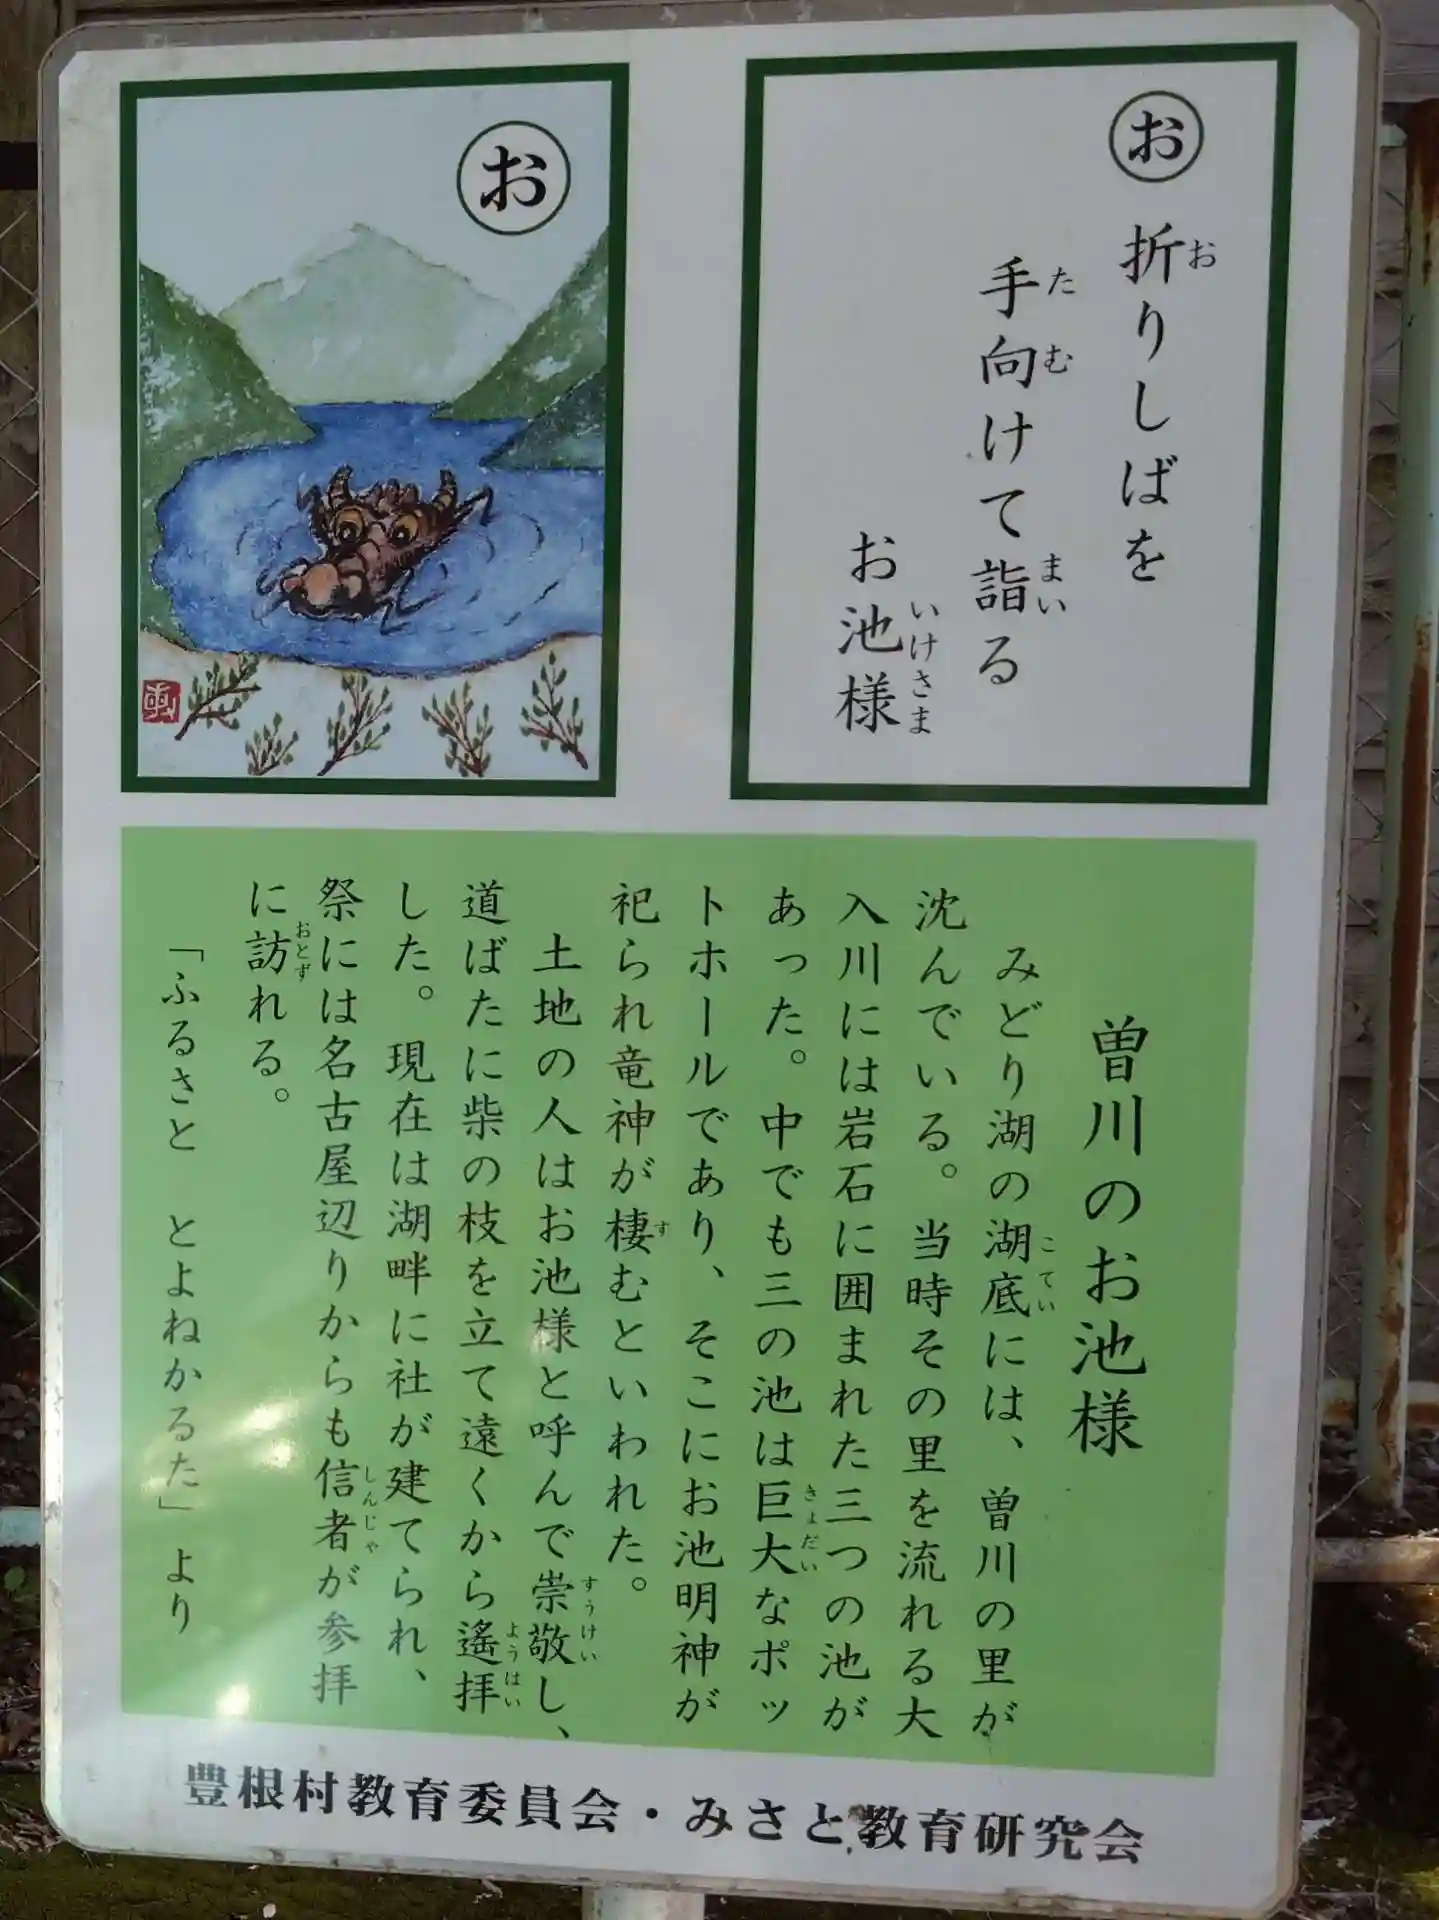 お
お
折りしばを
手向けて詣る
お池様
お
たむ
まい
いけさま
曽川のお池様
みどり湖の湖底には、曽川の里が
沈んでいる。当時その里を流れる大
入川には岩石に囲まれた三つの池が
あった。中でも三の池は巨大なポッ
トホールであり、そこにお池明神が
祀られ竜神が棲むといわれた。
土地の人はお池様と呼んで崇敬し、
道ばたに柴の枝を立て遠くから遙拝
した。現在は湖畔に社が建てられ、
祭には名古屋辺りからも信者が参拝
に訪れる。
「ふるさと とよねかるた」より
こてい
きょだい
す
すうけい
ようはい
しんじゃ
おとず
豊根村教育委員会・みさと教育研究会